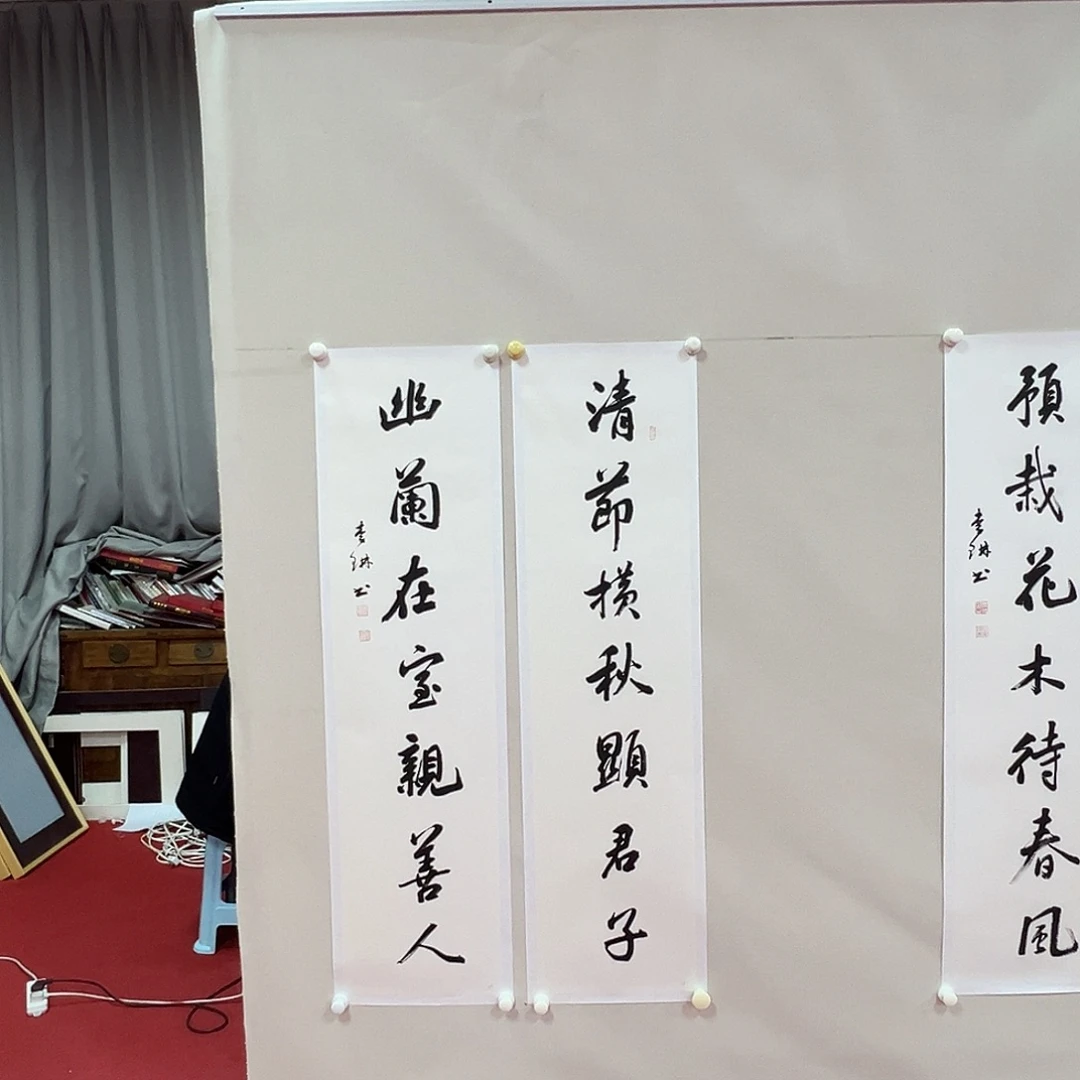 預栽花木待春風
李琳书
清節橫秋顯君子
幽蘭在室親善人
李琳书